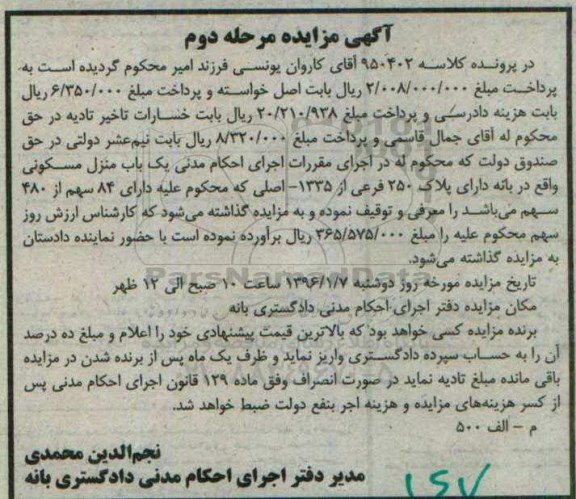 آگهی مزایده مرحله دوم
در پرونده کلاسه ۹۵۰۴۰۲ آقای کاروان یونسی فرزند امیر محکوم گردیده است به
پرداخت مبلغ ۲/۰۰۸/۰۰۰/۰۰۰ ریال بابت اصل خواسته و پرداخت مبلغ ۶/۳۵۰/۰۰۰ ریال
بابت هزینه دادرسی و پرداخت مبلغ ۲۰/۲۱۰/۹۳۸ ریال بابت خسارات تاخیر تادیه در حق
محکوم له آقای جمال قاسمی و پرداخت مبلغ ۸/۳۲۰/۰۰۰ ریال بابت نیم‌عشر دولتی در حق
صندوق دولت که محکوم له در اجرای مقررات اجرای احکام مدنی یک باب منزل مسکونی
واقع در بانه دارای پلاک ۲۵۰ فرعی از ۱۳۳۵- اصلی که محکوم علیه دارای ۸۴ سهم از ۴۸۰
سهم می‌باشد را معرفی و توقیف نموده و به مزایده گذاشته می‌شود که کارشناس ارزش روز
سهم محکوم علیه را مبلغ ۳۶۵/۵۷۵/۰۰۰ ریال برآورده نموده است با حضور نماینده دادستان
به مزایده گذاشته می‌شود.
تاریخ مزایده مورخه روز دوشنبه ۱۳۹۶/۱/۷ ساعت ۱۰ صبح الی ۱۲ ظهر
مکان مزایده دفتر اجرای احکام مدنی دادگستری بانه
برنده مزایده کسی خواهد بود که بالاترین قیمت پیشنهادی خود را اعلام و مبلغ ده درصد
آن را به حساب سپرده دادگستری واریز نماید و ظرف یک ماه پس از برنده شدن در مزایده
باقی مانده مبلغ تادیه نماید در صورت انصراف وفق ماده ۱۲۹ قانون اجرای احکام مدنی پس
از کسر هزینه‌های مزایده و هزینه اجر بنفع دولت ضبط خواهد شد.
م - الف ۵۰۰
نجم‌الدین محمدی
مدیر دفتر اجرای احکام مدنی دادگستری بانه
ParsNamadData